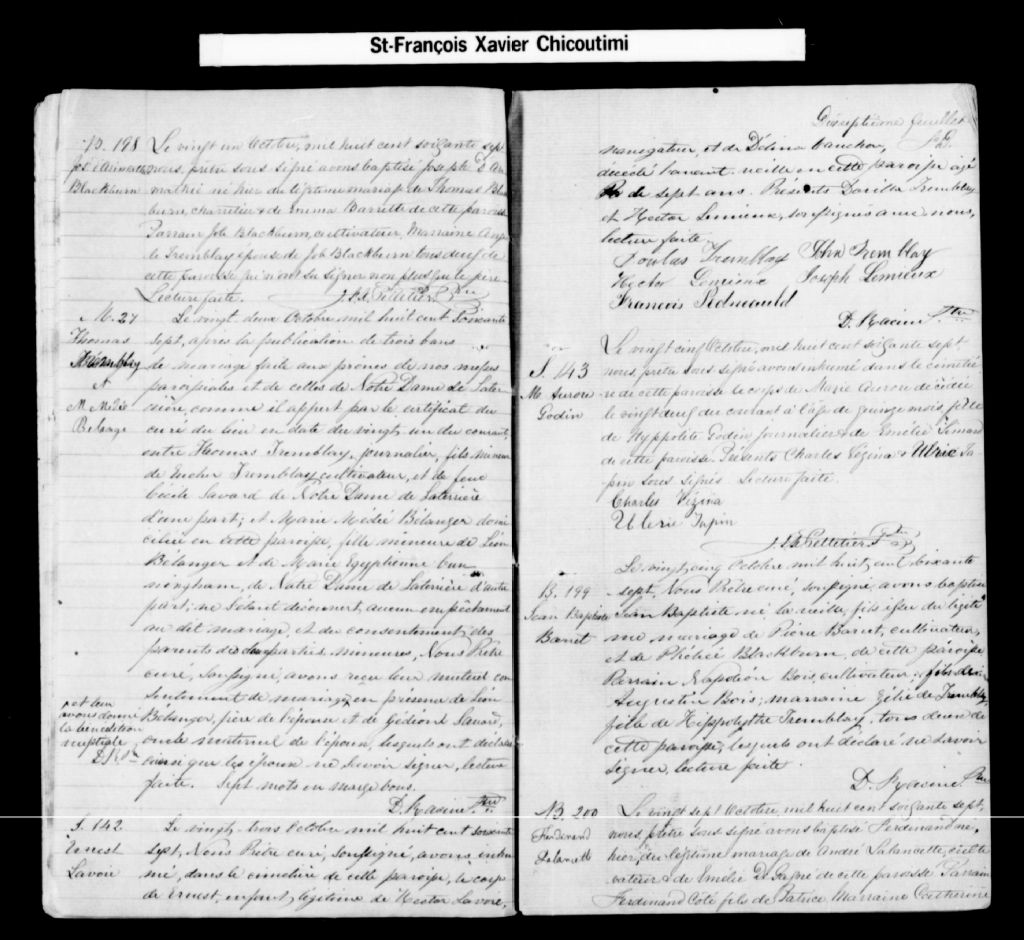 St-François Xavier Chicoutimi
B. 198
Jos. Arimathé
Blackburn
Le vingt un Octobre, mil huit cent soixante sept
nous, prêtre sous signé avons baptisé Joseph D'Ari
mathie né hier du légitime mariage de Thomas Bla
burn, charretier & de Emma Barrette de cette paroisse
Parrain Job Blackburn, cultivateur, Marraine Ange
le Tremblay épouse de Job Blackburn tous deux de
cette paroisse qui n'ont su signer non plus que le père
Lecture faite. J.A. Pelletier Ptre
M. 27
Thomas
Tremblay
&
M Médée
Belange
Le vingt-deux Octobre mil huit cent soixante
sept, après la publication de trois bans
de mariage faite aux prônes de nos messes
paroissiales et de celles de Notre Dame de Later
rière, comme il appert par le certificat du
curé du lieu en date du vingt un du courant,
entre Thomas Tremblay, journalier, fils mineur
de Eucher Tremblay cultivateur, et de feue
Cécile Savard de Notre Dame de Laterrière
d'une part; et Marie Médée Bélanger domi
ciliée en cette paroisse, fille mineure de Léon
Bélanger et de Marie Egyptienne Cun
ningham, de Notre Dame de Laterrière d'autre
part; ne s'étant découvert, aucun empêchement
au dit mariage, et du consentement des
parents des deux parties mineures, Nous Prêtre
curé, soussigné, avons reçu leur mutuel con
sentement de mariage x en présence de Léon
Bélanger, père de l'épouse et de Gédéon Savard,
oncle maternel de l'époux, lesquels ont déclaré
ainsi que les époux ne savoir signer, lecture
faite. Sept mots en marge bons.
x et leur
avons donné
la bénédiction
nuptiale
D.R. Ptre
D. Racine Ptre
S. 142
Ernest
Lavoie
Le vingt-trois Octobre mil huit cent soixante
sept, Nous Prêtre curé, soussigné, avons inhu
mé, dans le cimetière de cette paroisse, le corps
de Ernest, enfant légitime de Hector Lavoie,
feuillet
navigateur, et de Délina Gauthier,
décédé l'avant-veille en cette paroisse âgé
de sept ans. Présents Tremblay
et Hector Lemieux, soussignés avec nous,
lecture faite.
Tremblay John Tremblay
Hector Lemieux Joseph Lemieux
Francois
D. Racine Ptre
S. 143
M. Aurore
Godin
Le vingt cinq Octobre, mil huit cent soixante sept
nous, prêtre sous signé avons inhumé dans le cimetiè
re de cette paroisse le corps de Marie Aurore décédée
le vingt deux du courant à l'âge de quinze mois, fille
de Hyppolite Godin, journalier & de Emélie Simard
de cette paroisse. Présents Charles Vézina & Ulric Ta
pin sous signés. Lecture faite.
Charles Vézina
Ulric Tapin
J.A. Pelletier Ptre
B. 199
Jean Baptiste
Barret
Le vingt cinq Octobre mil huit cent soixante
sept, Nous Prêtre curé, soussigné, avons baptisé
Jean Baptiste né la veille, fils issu du légiti
me mariage de Pierre Barret, cultivateur,
et de Phébée Blackburn, de cette paroisse
Parrain Napoléon Bois, cultivateur, fils de
Augustin Bois; marraine Zélie Tremblay,
fille de Hippolythe Tremblay, tous deux de
cette paroisse, lesquels ont déclaré ne savoir
signer, lecture faite.
D. Racine Ptre
B. 200
Ferdinand
Lalancette
Le vingt sept Octobre, mil huit cent soixante sept,
nous, prêtre sous signé avons baptisé Ferdinand né
hier, du légitime mariage de André Lalancette, culti
vateur & de Emélie de cette paroisse Parrain
Ferdinand Coté fils de Patrice, Marraine Catherine